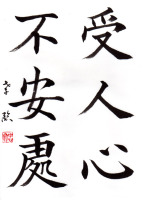 受人心
不安處